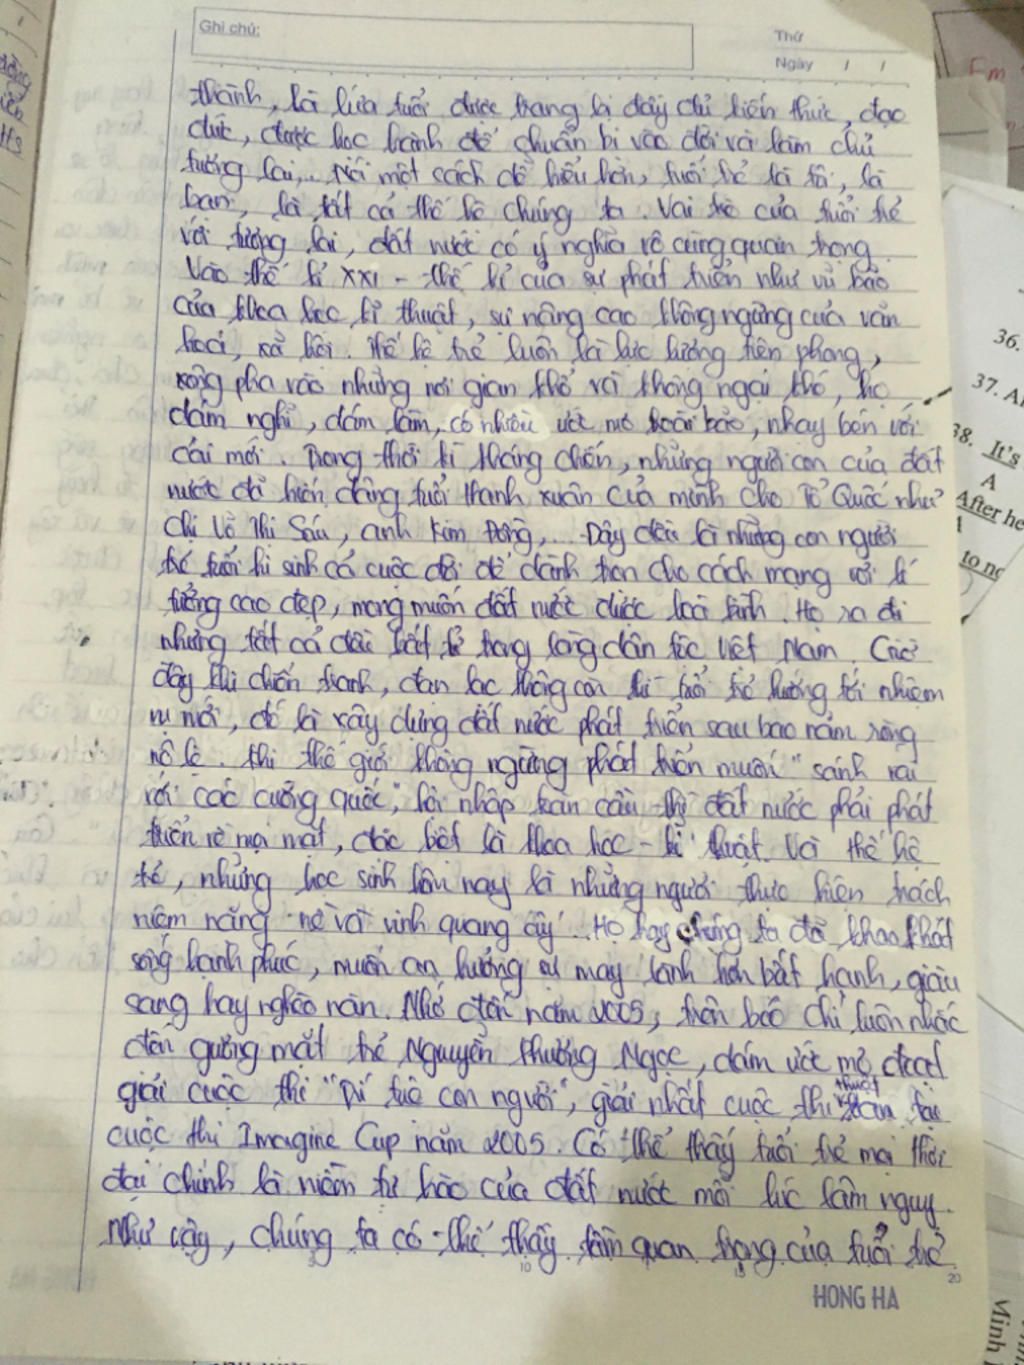 Ghi chú:
Thứ
Ngày / /
thành, là lứa tuổi được trang bị đầy đủ kiến thức, đạo
đức, được học hành để chuẩn bị vào đời và làm chủ
tương lai,... Nói một cách dễ hiểu hơn, tuổi trẻ là tôi, là
bạn, là tất cả thế hệ chúng ta. Vai trò của tuổi trẻ
với tương lai, đất nước có ý nghĩa vô cùng quan trọng.
Vào thế kỉ XXI - thế kỉ của sự phát triển như vũ bão
của khoa học kĩ thuật, sự nâng cao không ngừng của văn
hoá, xã hội. Thế hệ trẻ luôn là lực lượng tiên phong,
xông pha vào những nơi gian khổ và không ngại khó, họ
dám nghĩ, dám làm, có nhiều ước mơ hoài bão, nhạy bén với
cái mới. Trong thời kì kháng chiến, những người con của đất
nước đã hiến dâng tuổi thanh xuân của mình cho Tổ Quốc như
chị Võ Thị Sáu, anh Kim Đồng,... Đây đều là những con người
trẻ tuổi hi sinh cả cuộc đời để dành trọn cho cách mạng với lí
tưởng cao đẹp, mong muốn đất nước được hoà bình. Họ ra đi
nhưng tất cả đều bất tử trong lòng dân tộc Việt Nam. Giờ
đây khi chiến tranh, đạn lạc không còn thì tuổi trẻ hướng tới nhiệm
vụ mới, đó là xây dựng đất nước phát triển sau bao năm ròng
nô lệ. Khi thế giới không ngừng phát triển muốn "sánh vai
với các cường quốc", hội nhập toàn cầu thì đất nước phải phát
triển về mọi mặt, đặc biệt là khoa học - kĩ thuật. Và thế hệ
trẻ, những học sinh hôm nay là những người thực hiện trách
niệm nặng nề và vinh quang ấy... Họ hay chúng ta đã khao khát
sống hạnh phúc, muốn an hưởng sự may lành hơn bất hạnh, giàu
sang hay nghèo nàn. Nhớ đến năm 2005, trên báo chí luôn nhắc
đến gương mặt trẻ Nguyễn Phương Ngọc, dám ước mơ, đoạt
giải cuộc thi "Trí tuệ con người", giải nhất cuộc thi thuật toán tại
cuộc thi Imagine Cup năm 2005. Có thể thấy tuổi trẻ mọi thời
đại chính là niềm tự hào của đất nước mỗi lúc lâm nguy.
Như vậy, chúng ta có thể thấy tầm quan trọng của tuổi trẻ
5 10 15 20
HONG HA
36.
37. A
38. It's
A
After he
to no
Minh
Em